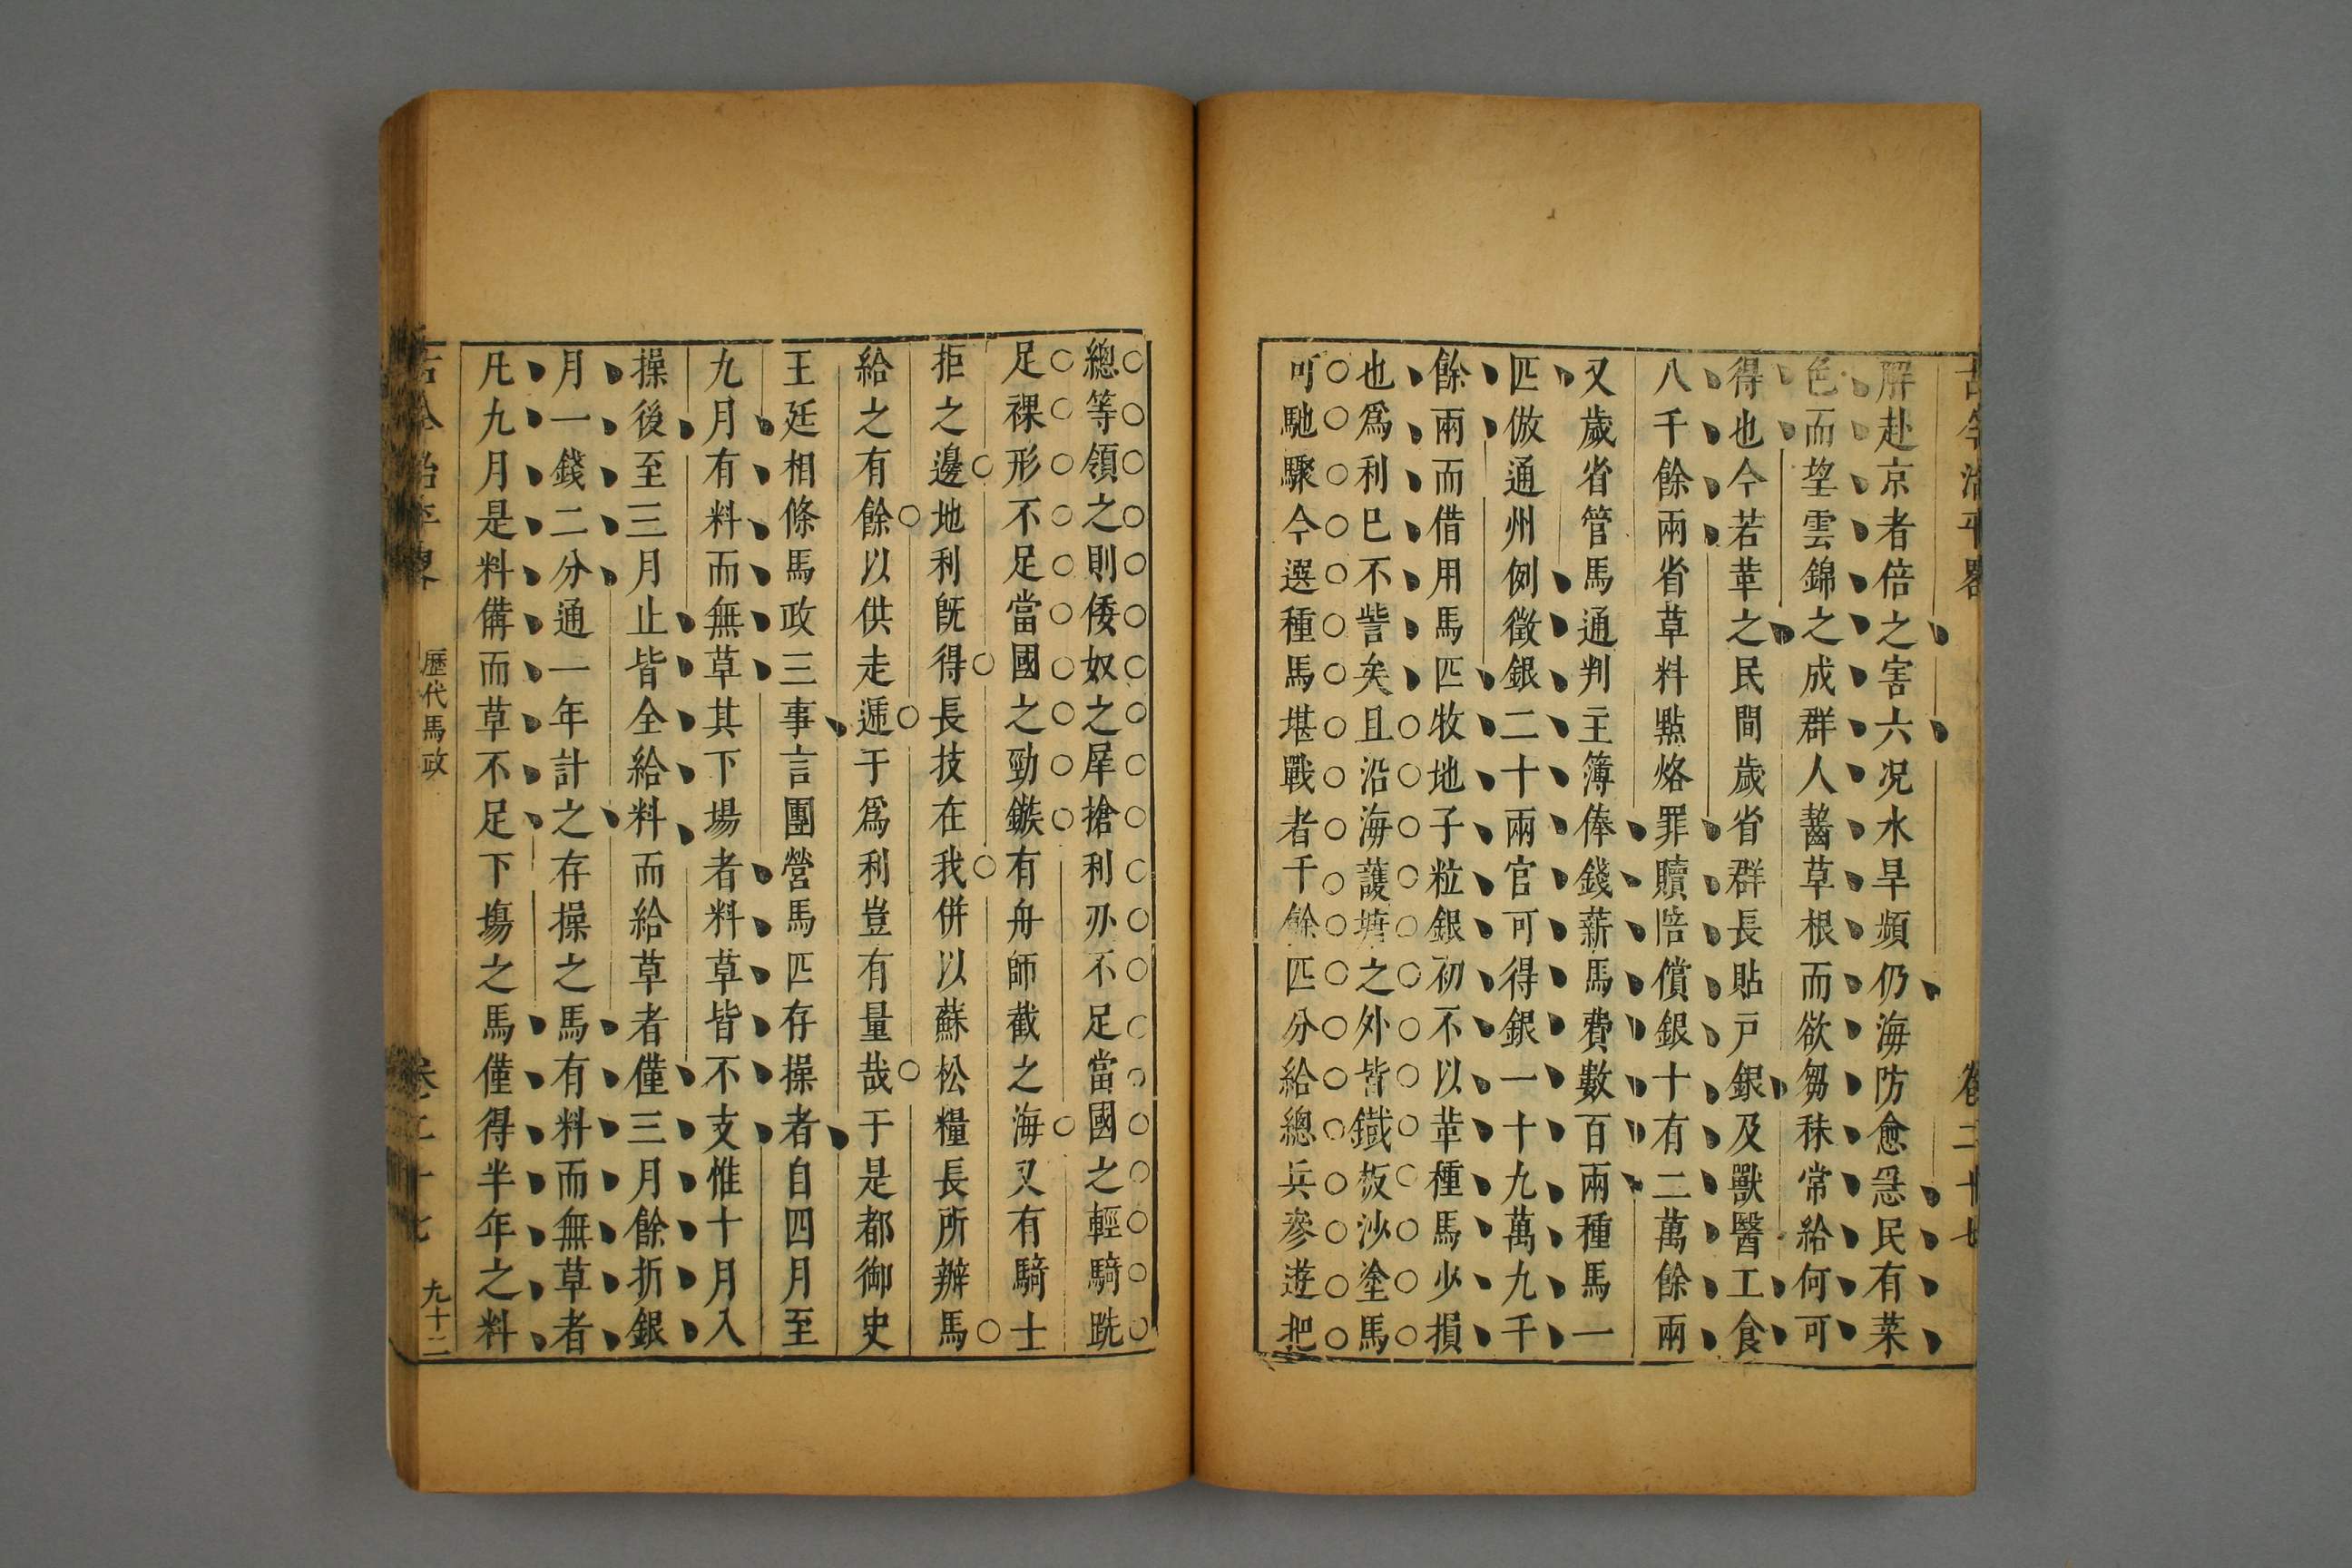 古今治平畧 卷二十七
解赴京者倍之害六况水旱頻仍海防愈急民有菜
色而望雲錦之成群人齧草根而欲芻秣常給何可
得也今若革之民間歲省群長貼戸銀及獸醫工食
八千餘兩省草料點烙罪贖陪償銀十有二萬餘兩
又歲省管馬通判主簿俸錢薪馬費數百兩種馬一
匹倣通州例徵銀二十兩官可得銀一十九萬九千
餘兩而借用馬匹牧地子粒銀初不以革種馬少損
也爲利巳不訾矣且沿海護塘之外皆鐵板沙塗馬
可馳驟今選種馬堪戰者千餘匹分給總兵參遊把
總等領之則倭奴之犀搶利刃不足當國之輕騎跣
足裸形不足當國之勁鏃有舟師截之海又有騎士
拒之邊地利旣得長技在我併以蘇松糧長所辦馬
給之有餘以供走遞于爲利豈有量哉于是都御史
王廷相條馬政三事言團營馬匹存操者自四月至
九月有料而無草其下場者料草皆不支惟十月入
操後至三月止皆全給料而給草者僅三月餘折銀
月一錢二分通一年計之存操之馬有料而無草者
凡九月是料備而草不足下塲之馬僅得半年之料
古今治平畧 歷代馬政 卷二十七 九十二